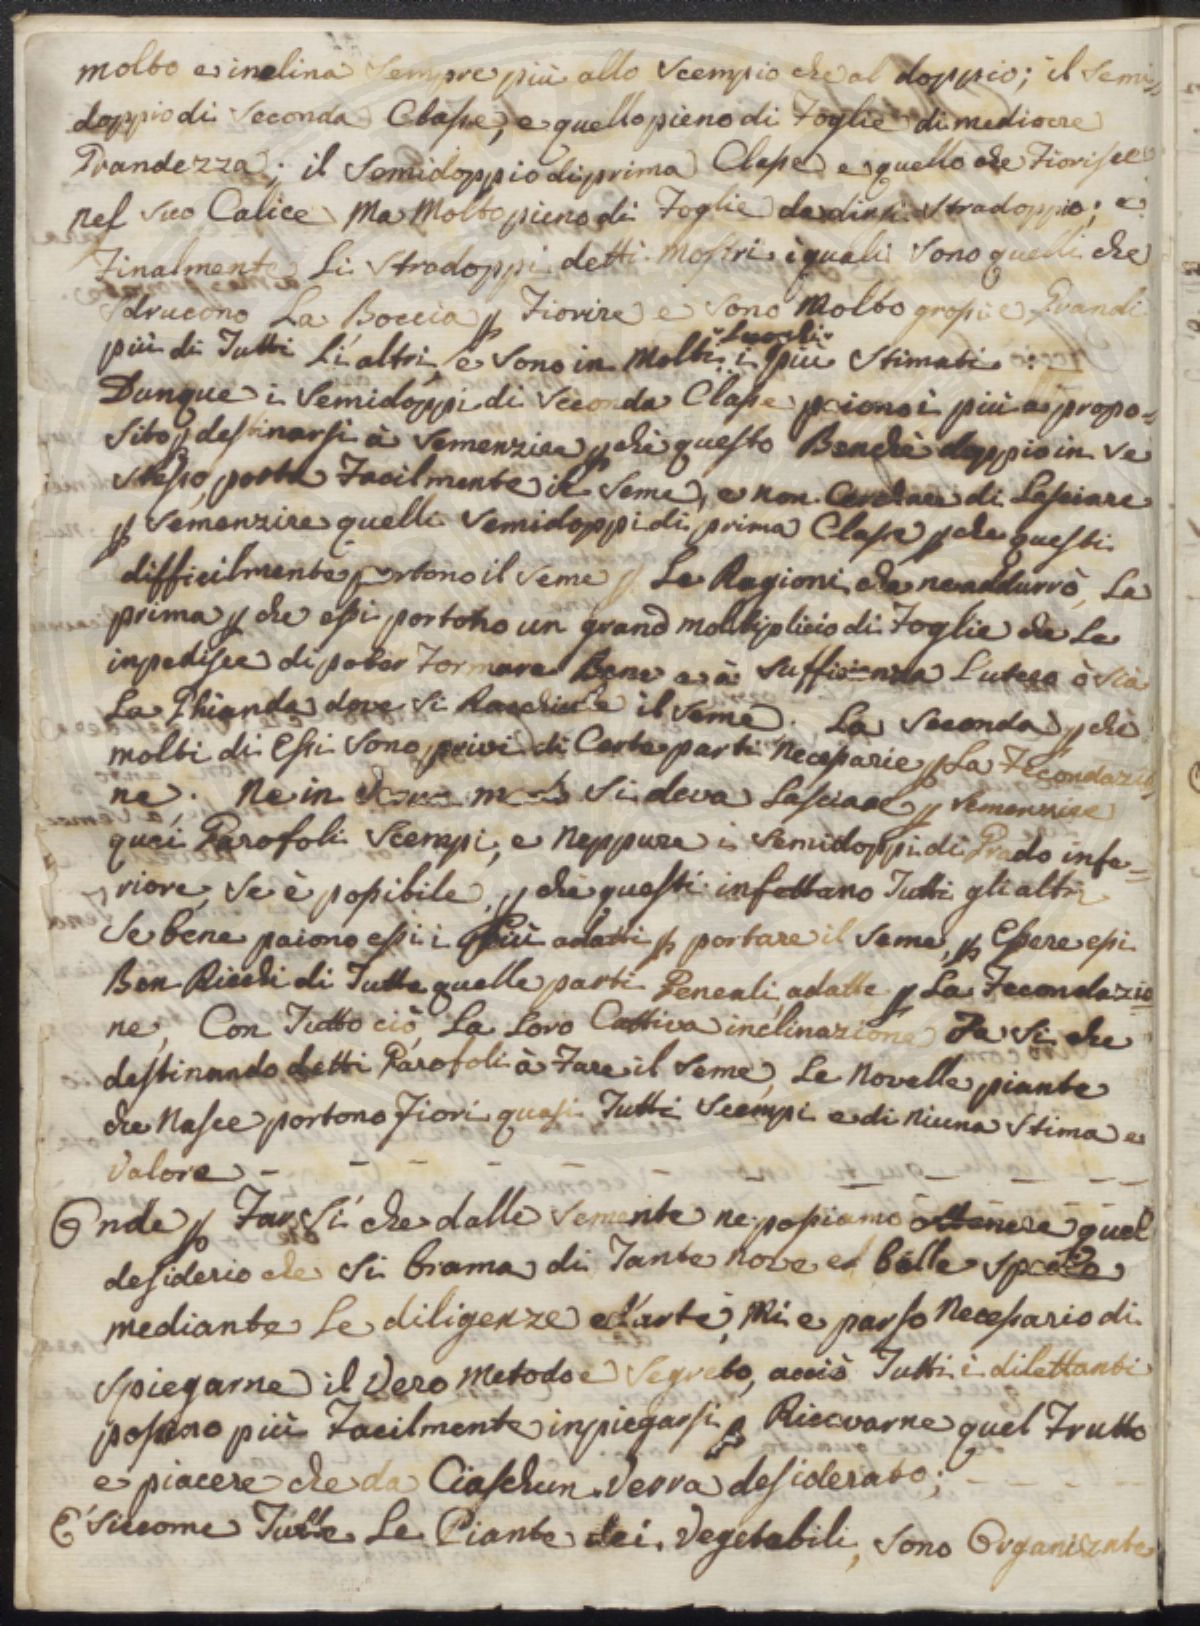 molto e inclina sempre più allo scempio che al doppio; il Semi=
doppio di Seconda Classe, e quello pieno di Foglie di mediocre
Grandezza; il Semidoppio di prima Classe e quello che Fiorisce
nel suo Calice Ma Molto pieno di Foglie da dirsi Stradoppio; e
Finalmente Li Stradoppi detti Mostri i quali sono quelli che
sdrucono La Boccia p Fiorire e sono Molto grossi e Grandi
più di Tutti Li altri, e sono in Molti Luoghi i più Stimati.
Dunque i Semidoppi di Seconda Classe paiono i più a propo=
sito p destinarsi à Semenzire p che questo Benchè doppio in se
stesso, porta Facilmente il Seme, e non Cerchare di Lasciare
p Semenzire quelli Semidoppi di prima Classe p che questi
difficilmente portono il Seme p Le Ragioni che ne addurrò, La
prima p che essi portono un grand moltiplicio di Foglie che Le
inpedisce di poter Formare Bene e à sufficienza L'utero ò sia
La Ghianda dove si Raschiude il Seme. La Seconda p chè
molti di Essi sono privi di Certe parti Necessarie p La Fecondazio=
ne. Ne in si deva Lasciare p Semenzire
quei Garofoli Scempi, e Neppure i Semidoppi di Grado infe=
riore, se è possibile, p chè questi infettano Tutti gli altri
se bene paiono essi i Più adatti p portare il Seme, p Essere essi
Ben Ricchi di Tutte quelle parti Geneali adatte p La Fecondazio=
ne, Con Tutto ciò La Loro Cattiva inclinazione Fa si che
destinando detti Garofoli à Fare il Seme, Le Novelle piante
che Nasce portono Fiori quasi Tutti Scempi e di Niuna Stima e
Valore - - - - - - - - - - - -
Onde p Far Sì che dalle Semente ne possiamo ottenere quel
desiderio che si brama di Tante nove e belle spezie
mediante Le diligenze e L'arte, Mi e parso Necessario di
spiegarne il Vero Metodo e Segreto, acciò Tutti i dilettanti
possino più Facilmente inpiegarsi p Riccvarne quel Frutto
e piacere che da Ciaschun Verra desiderato; - - - -
E' Siccome Tutte Le Piante dei Vegetabili, sono Organizate